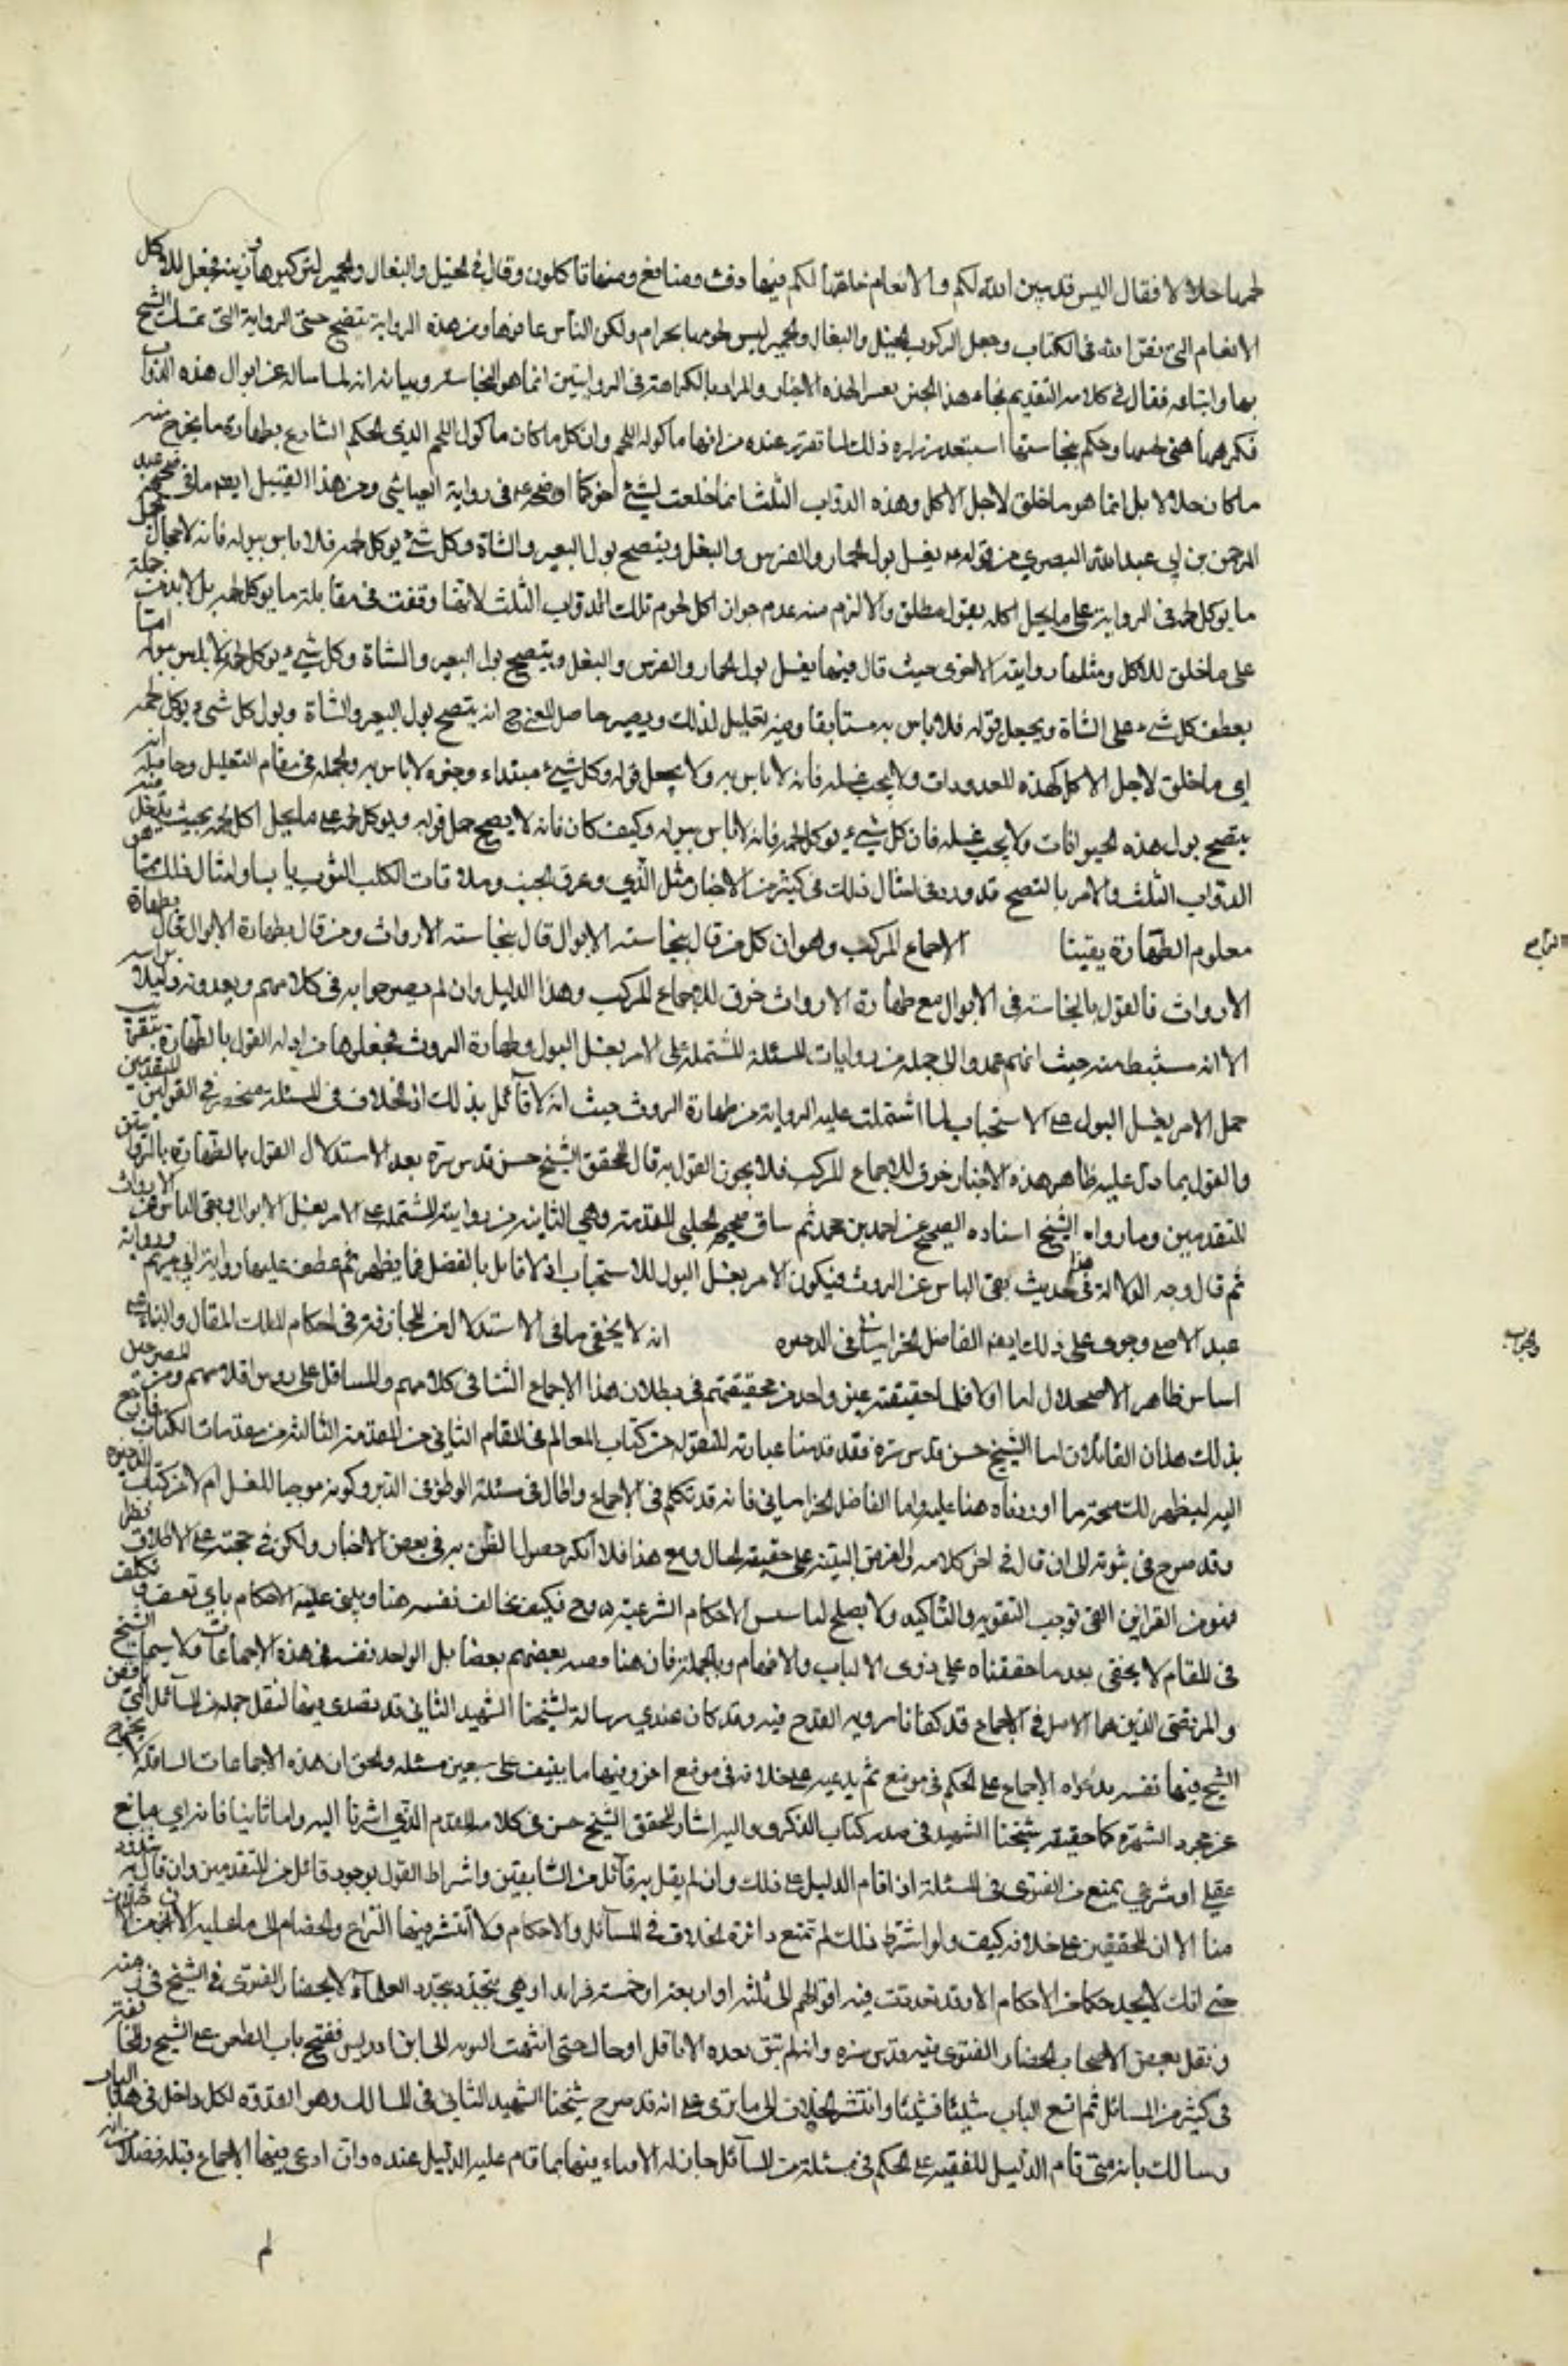 لحمها حلالا فقال اليس قد بين الله لكم والانعام خلقها لكم فيها دفء ومنافع ومنها تاكلون وقال في الخيل والبغال والحمير لتركبوها وزينة فجعل للاكل
الانعام التي نص الله في الكتاب وجعل الركوب الخيل والبغال والحمير ليس لحومها بحرام ولكن الناس عافوها ومن هذه الرواية يتضح حتى الرواية التي تمسك الشيخ
بها واتباعه فقال في كلامه التقديم بهذا الجنس يفسر لهذه الاخبار والمراد بالكراهة في الروايتين انما هو النجاسة وبيانه انه لما ساله عن ابوال هذه الدواب
فكرهها فنهى لحمها وحكم بنجاستها استبعد زراره ذلك لما تقرر عنده من انها ماكولة اللحم وان كل ما كان ماكول اللحم الذي حكم الشارع بطهارة ما يخرج منه
ما كان حلالا بل انما هو ما خلق لاجل الاكل وهذه الدواب الثلث انما خلقت لشيء اخر كما اوضحه في رواية العياشي ومن هذا القبيل ايضا ما في صحيحة عبد
الرحمن بن ابي عبد الله البصري من قوله يغسل بول الحمار والفرس والبغل وينضح بول البعير والشاة وكل شيء يوكل لحمه فلا باس ببوله فانه لا مجال لحمل
ما يوكل لحمه في الرواية على ما يحل اكله بقول مطلق والا لزم منه عدم جواز اكل لحوم تلك الدواب الثلث لانها وقعت في مقابلة ما يوكل لحمه بل لا بد من حمله
على ما خلق للاكل ومثلها روايته الاخرى حيث قال فيها يغسل بول الحمار والفرس والبغل وينضح بول البعير والشاة وكل شيء يوكل لحمه فلا باس ببوله اما
بعطف كل شيء على الشاة ويجعل قوله فلا باس به مستانفا وفيه تعليل لذلك ويصير حاصل المعنى ح انه ينضح بول البعير والشاة وبول كل شيء يوكل لحمه
اي ما خلق لاجل الاكل كهذه المعدودات ولا يجب غسله فانه لا باس به ولا يجعل قوله وكل شيء مبتداء وخبره لا باس به والجملة في مقام التعليل وحاصله انه
ينضح بول هذه الحيوانات ولا يجب غسله فان كل شيء يوكل لحمه فانه لا باس ببوله وكيف كان فانه لا يصح حمل قوله ويوكل لحمه على ما يحل اكل لحمه بحيث يدخل فيه
الدواب الثلث والامر بالنضح قد ورد في امثال ذلك في كثير من الاخبار مثل المذي وعرق الجنب وملاقات الكلب الثوب يابسا وامثال ذلك مما هو
معلوم الطهارة يقينا الاجماع المركب وهو ان كل من قال بنجاسة الابوال قال بنجاسة الارواث ومن قال بطهارة الابوال قال بطهارة
الارواث فالقول بالنجاسة في الابوال مع طهارة الارواث خرق للاجماع المركب وهذا الدليل وان لم يصرحوا به في كلامهم ويعدونه دليلا براسه
الا انه مستنبط منه حيث انهم عمدوا الى جملة من روايات المسئلة المشتملة على الامر بغسل البول وطهارة الروث فجعلوها من ادلة القول بالطهارة بتقريب
حمل الامر بغسل البول على الاستحباب لما اشتملت عليه الرواية من طهارة الروث حيث انه لا قائل بذلك اذ الخلاف في المسئلة منحصر في القولين المتقدمين
والقول بما دل عليه ظاهر هذه الاخبار خرق للاجماع المركب فلا يجوز القول به قال المحقق الشيخ حسن قدس سره بعد الاستدلال القول بالطهارة بالروايتين
المتقدمين وما رواه الشيخ اسناده الصحيح عن احمد بن محمد ثم ساق صحيحة الحلبي المتقدمة وهي الثانية من روايته المشتملة على الامر بغسل الابوال ونفي الباس عن الارواث
ثم قال وجه الدلالة في هذا الحديث نفي الباس عن الروث فيكون الامر بغسل البول للاستحباب اذ لا قايل بالفصل فيما يظهر ثم عطف عليها رواية ابي مريم ورواية
عبد الاعلى وجرى على ذلك ايضا الفاضل الخراساني في الذخيره انه لا يخفى ما في الاستدلال من المجازفة في احكام الملك المتعال والبناء على
اساس ظاهر الاضمحلال اما اولا فلما حققته غير واحد من محققيهم في بطلان هذا الاجماع الشا في كلامهم والمسائل على روس اقلامهم ومن المصرحين
بذلك هذان القائلان اما الشيخ حسن قدس سره فقد قدمنا عبارته المنقولة من كتاب المعالم في المقام الثاني من المقدمة الثالثة من مقدمات الكتاب فارجع
اليه ليظهر لك صحة ما اوردناه هنا عليه واما الفاضل الخراساني فانه قد تكلم في الاجماع واطال في مسئلة الوطؤ في الدبر وكونه موجبا للغسل ام لا من كتاب الذخيرة
وقد صرح في ثبوته الى ان قال في اخر كلامه والغرض البينة على حقيقة الحال ومع هذا فلا انكر حصول الظن به في بعض الاخبار ولكن في حجته على الاطلاق نظر
فهو من القراين التي توجب التقوية والتاكيد ولا يصلح لتاسيس الاحكام الشرعية وح فكيف يخالف نفسه هنا ويبني عليه الاحكام باي تعسف وتكلف
في المقام لا يخفى بعد ما حققناه على ذوى الالباب والافهام وبالجملة فان هنا بعضهم بعضا بل الواحد نفسه في هذه الاجماعات ولا سيما الشيخ
والمرتضى الذين هما الاصل في الاجماع قد كفانا مؤنة القدح فيه وقد كان عندي رسالة لشيخنا الشهيد الثاني قد تصدى فيها لنقل جملة من المسائل التي ناقض
الشيخ فيها نفسه بدعواه الاجماع على الحكم في موضع ثم يدعيه على خلافه في موضع اخر وفيها ما ينيف على سبعين مسئلة والحق ان هذه الاجماعات لا تخرج
عن مجرد الشهرة كما حققه شيخنا الشهيد في صدر كتاب الذكرى واليه اشار المحقق الشيخ حسن في كلامه المتقدم الذي اشرنا اليه واما ثانيا فانه اي مانع
عقلي او شرعي يمنع من الفتوى في المسئلة اذا قام الدليل على ذلك وان لم يقل به قائل من السابقين واشتراط القول بوجود قائل من المتقدمين وان قال به
منا الا ان المحققين على خلافه كيف ولو اشترط ذلك لم تتسع دائرة الخلاف في المسائل والاحكام ولا انتشر فيها النزاع والخصام الى ما عليه الان من
حتى انك لا تجد حكما من الاحكام الا وقد تعددت فيه اقوالهم الى ثلثه او اربعه او خمسة فزايدا وهي تتجدد بتجدد العلماء لا انحصار الفتوى في الشيخ في
ونقل بعض الاصحاب انحصار الفتوى فيه قدس سره وانه لم يبق بعده الا ناقل او حاك حتى انتهت النوبة الى ابن ادريس ففتح باب الطعن على الشيخ والمخالفة
في كثير من المسائل ثم اتسع الباب شيئا فشيئا وانتشر الخلاف الى ما ترى على انه قد صرح شيخنا الشهيد الثاني في المسالك وهو القدوة لكل داخل في هذا الباب
وسالك بانه متى قام الدليل للفقيه على الحكم في مسئلة من المسائل جاز له الافتاء فيها بما قام عليه الدليل عنده وان ادعى فيها الاجماع قبله فضلا
لم